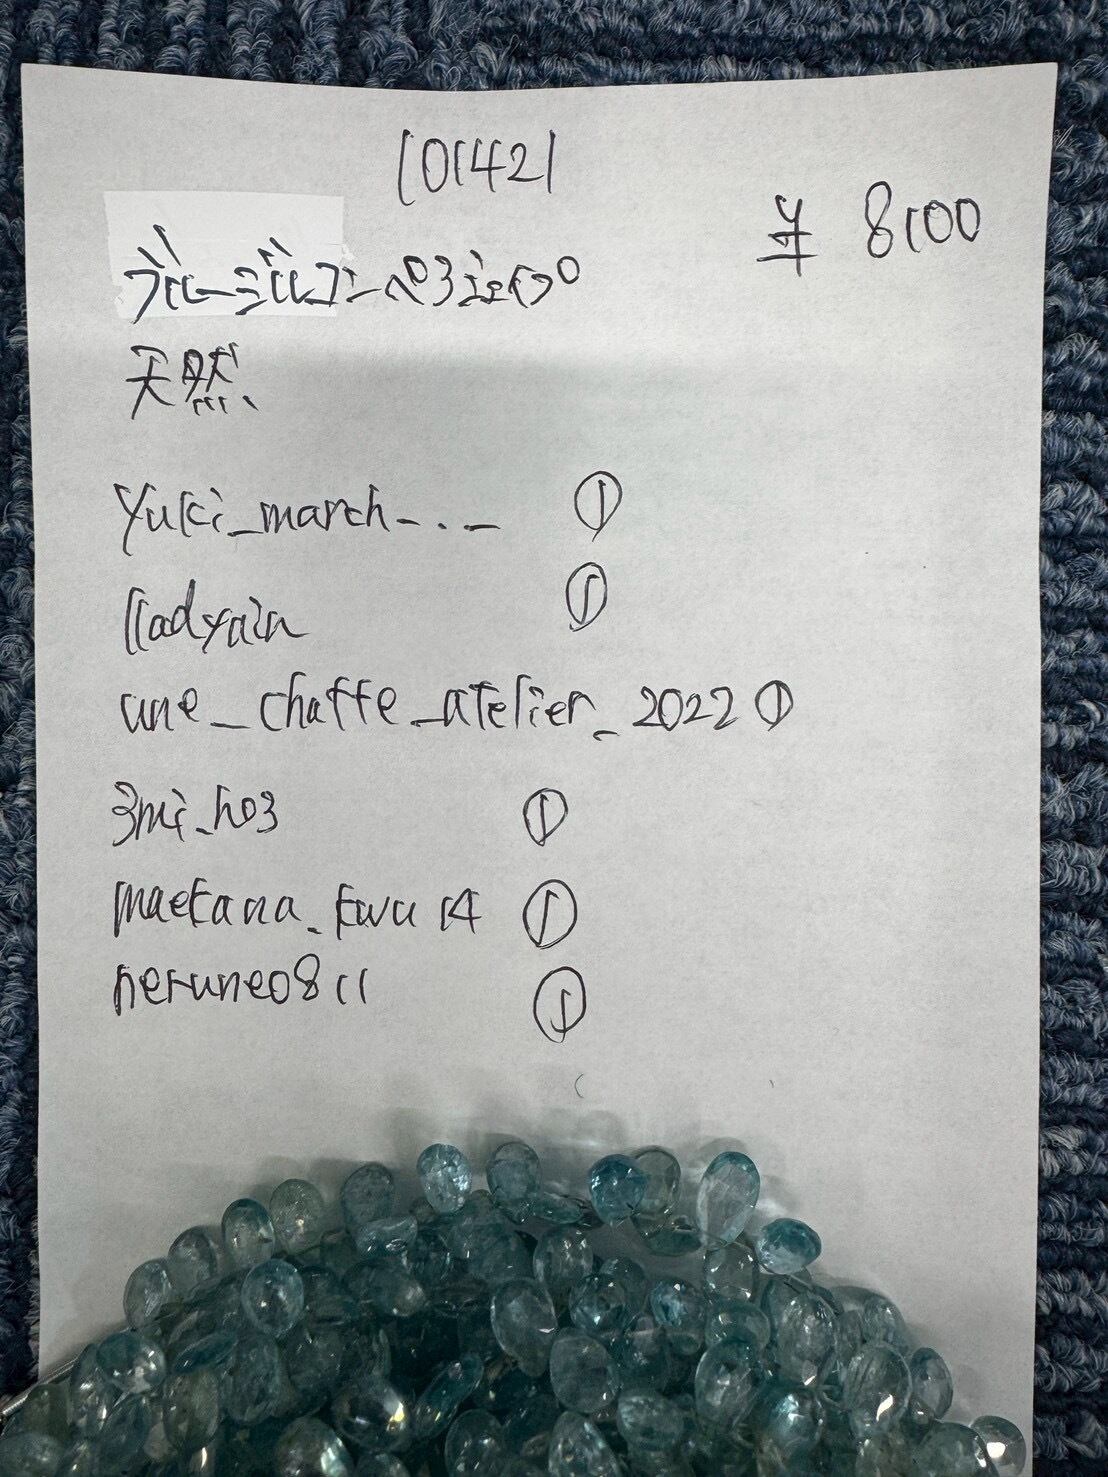 101421
¥ 8100
天然
yuki_march_._ ①
lladyain ①
une_chatte_atelier_2022 ①
3mi_ho3 ①
maetana_fuvu14 ①
herune0811 ①